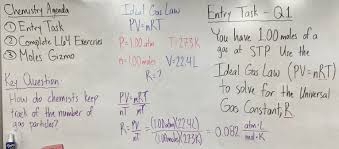 Chemistry Agenda
① Entry Task
② Complete L64 Exercises
③ Moles Gizmo
Key Question
How do chemists keep
track of the number of
gas particles?
Ideal Gas Law
PV=nRT
P=1.00 atm T=273K
n=1.00 moles V=22.4L
R=?
PV = nRT
nT nT
R = PV = (1.00 atm)(22.4L) = 0.082 atm·L
nT (1.00 moles)(273K) mol·K
Entry Task - Q1
You have 1.00 moles of a
gas at STP Use the
Ideal Gas Law (PV=nRT)
to solve for the Universal
Gas Constant, R